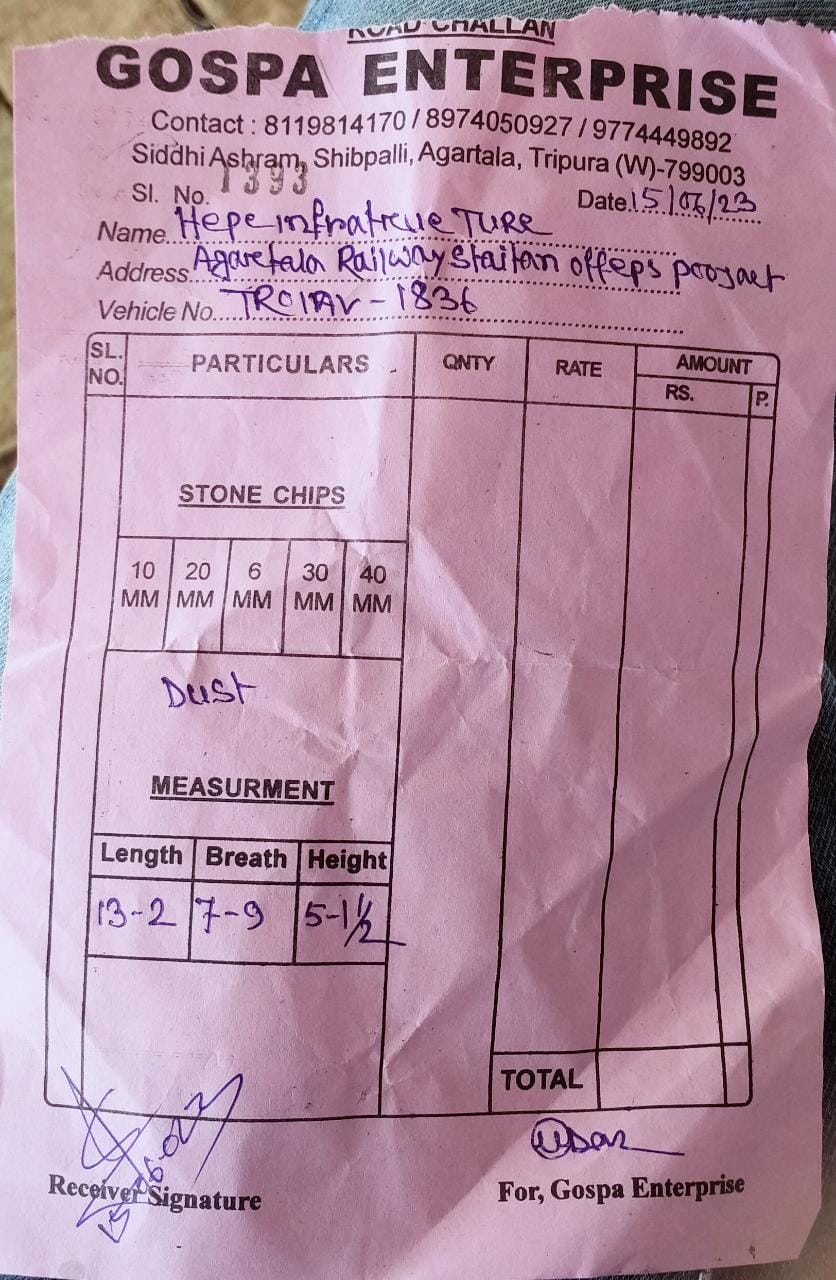 ROAD CHALLAN
GOSPA ENTERPRISE
Contact : 8119814170 / 8974050927 / 9774449892
Siddhi Ashram, Shibpalli, Agartala, Tripura (W)-799003
Sl. No. 1393 Date 15/06/23
Name Hepe infratrcue TURE
Address Agaretala Railway Staitan offeps
Vehicle No. TRC1AV-1836
SL. NO. PARTICULARS QNTY RATE AMOUNT
RS. P.
STONE CHIPS
10 MM 20 MM 6 MM 30 MM 40 MM
Dust
MEASURMENT
Length Breath Height
13-2 7-9 5-1½
TOTAL
Receiver Signature For, Gospa Enterprise